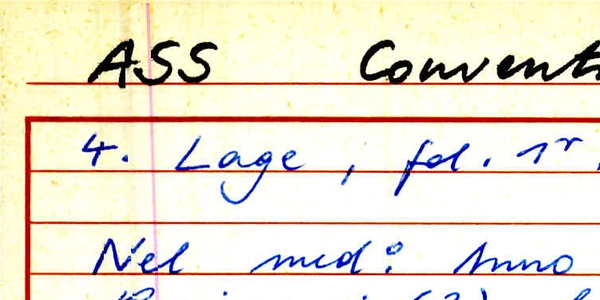 ASS Convent
4. Lage, fol. 1r.
Nel med: Anno